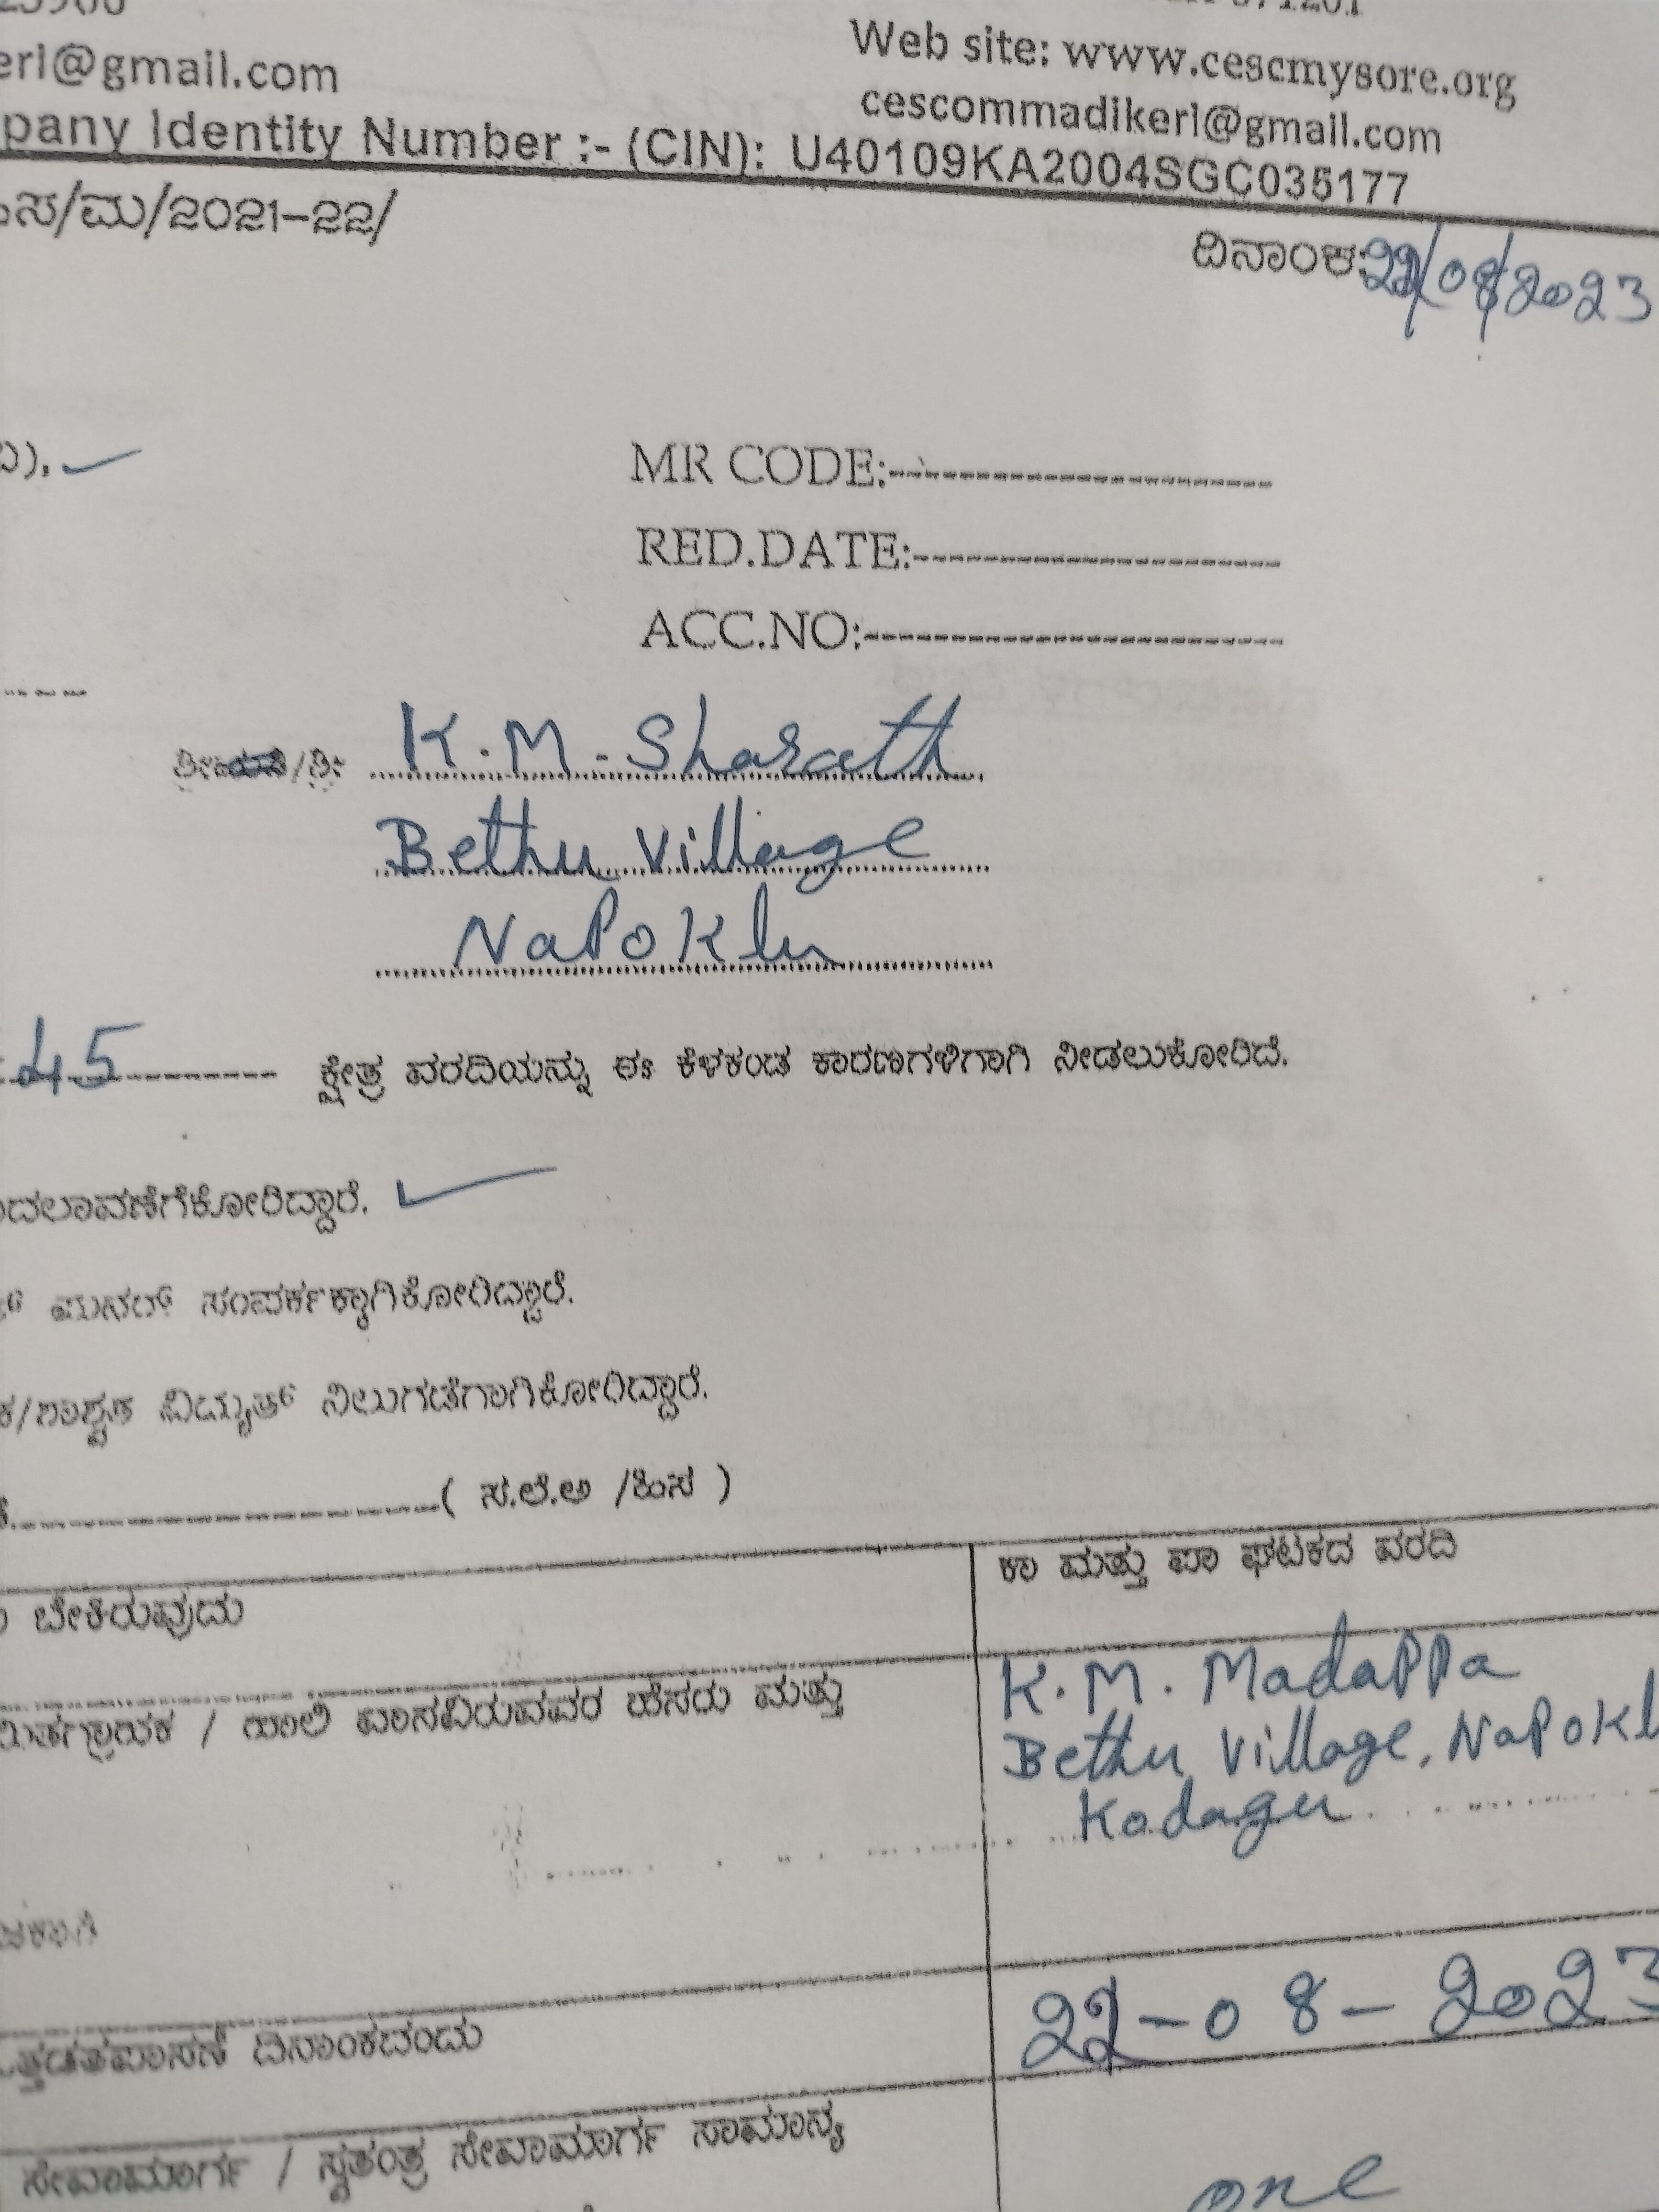 eri@gmail.com
Web site: www.cescmysore.org
cescommadikeri@gmail.com
pany Identity Number :- (CIN): U40109KA2004SGC035177
ಸ/ಮ/೨೦೨೧-೨೨/
ದಿನಾಂಕ: 22/08/2023
MR CODE:
RED.DATE:
ACC.NO:
/ಶ್ರೀ K.M. Sharath
Bethu Village
Napoklu
45 ಕ್ಷೇತ್ರ ವರದಿಯನ್ನು ಈ ಕೆಳಕಂಡ ಕಾರಣಗಳಿಗಾಗಿ ನೀಡಲುಕೋರಿದೆ.
ದಲಾವಣೆಗೆಕೋರಿದ್ದಾರೆ.
ಮನರ್ ಸಂಪರ್ಕಕ್ಕಾಗಿಕೋರಿದ್ದಾರೆ.
ಕ/ಶಾಶ್ವತ ವಿದ್ಯುತ್ ನಿಲುಗಡೆಗಾಗಿಕೋರಿದ್ದಾರೆ.
( ಸ.ಲೆ.ಅ /ಹಿಸ )
ಬೇಕಿರುವುದು
ಕಾ ಮತ್ತು ಪಾ ಘಟಕದ ವರದಿ
/ ಹಾಲಿ ವಾಸವಿರುವವರ ಹೆಸರು ಮತ್ತು
K.M. Madappa
Bethu Village, Napokl
Kodagu
ದಿನಾಂಕಬಂದು
22-08-2023
ಸೇವಾಮಾರ್ಗ / ಸ್ವತಂತ್ರ ಸೇವಾಮಾರ್ಗ ಸಾಮಾನ್ಯ
one